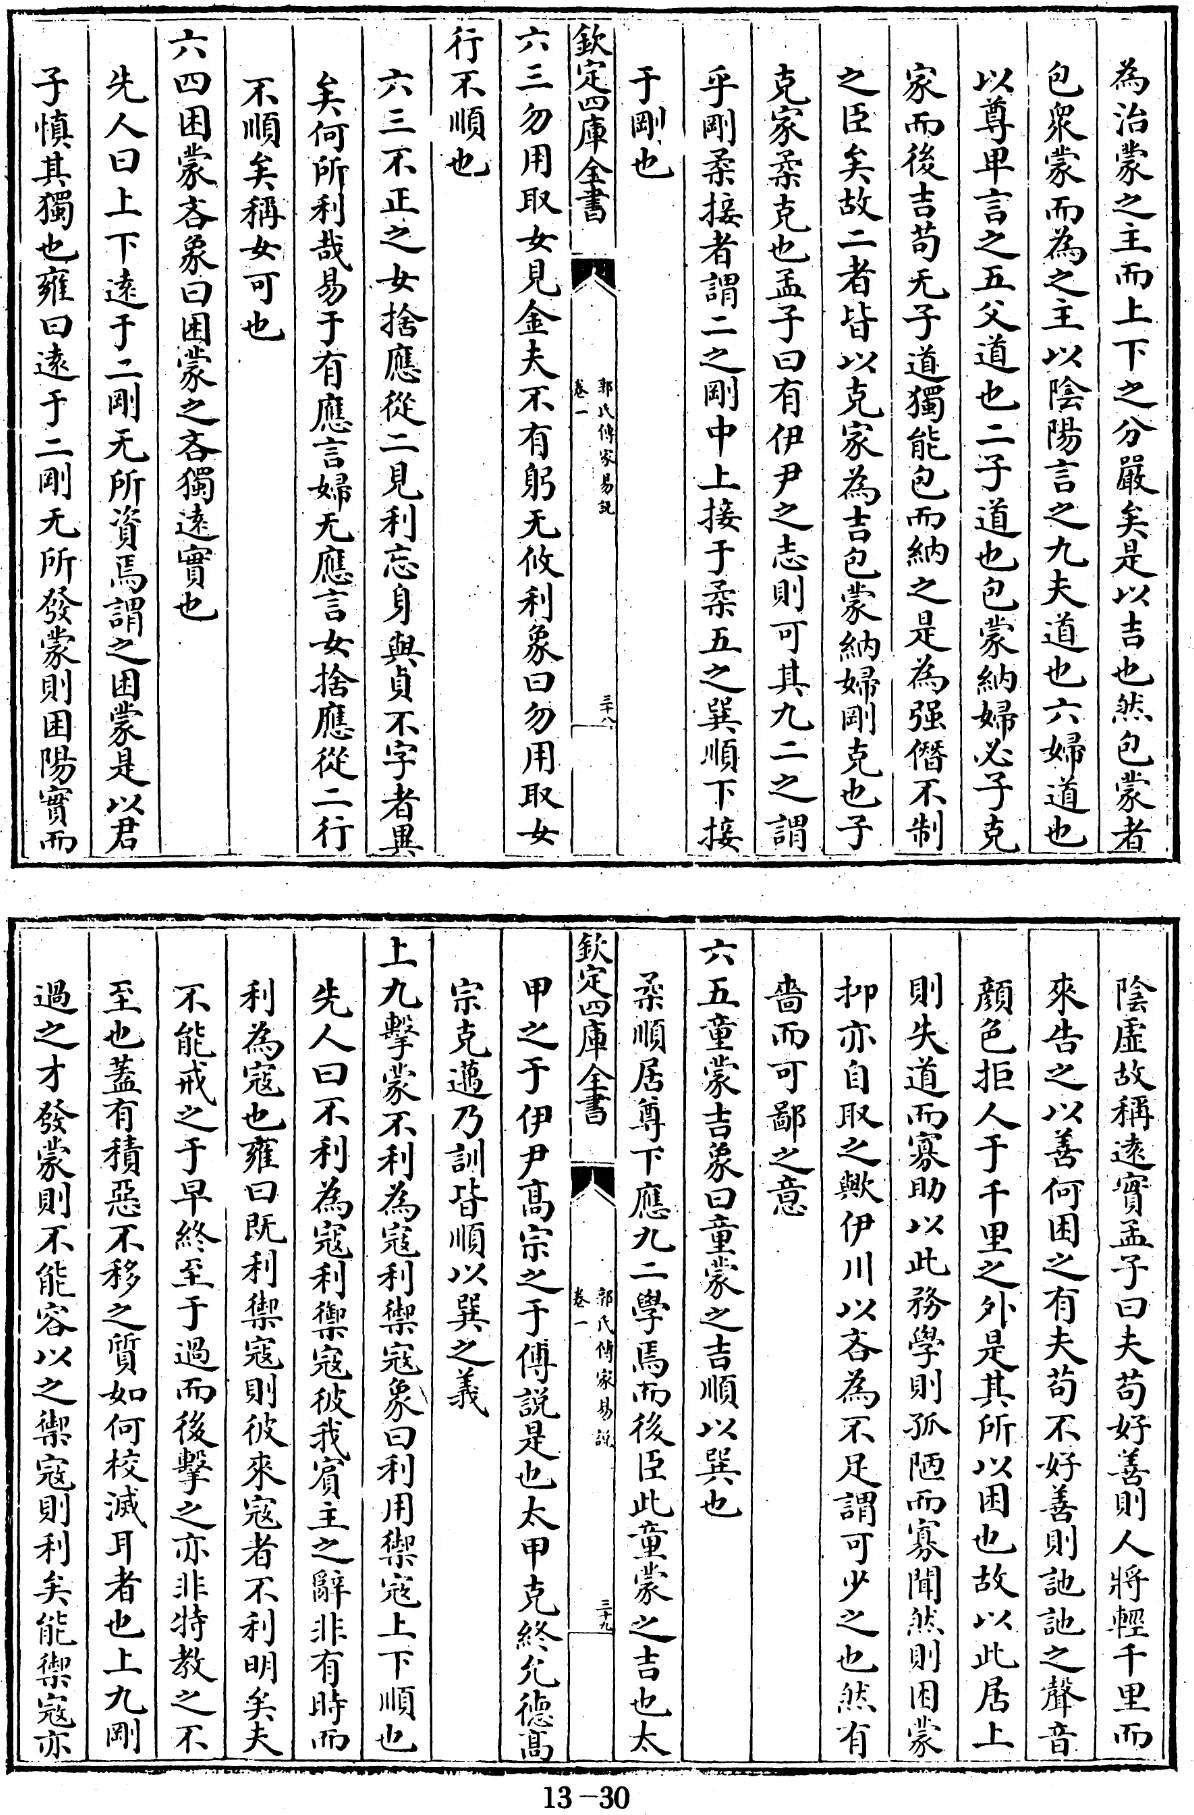 為治蒙之主而上下之分嚴矣是以吉也然包蒙者
包衆蒙而為之主以陰陽言之九夫道也六婦道也
以尊卑言之五父道也二子道也包蒙納婦必子克
家而後吉苟无子道獨能包而納之是為强僭不制
之臣矣故二者皆以克家為吉包蒙納婦剛克也子
克家柔克也孟子曰有伊尹之志則可其九二之謂
乎剛柔接者謂二之剛中上接于柔五之巽順下接
于剛也
欽定四庫全書
郭氏傳家易說
卷一
三十八
六三勿用取女見金夫不有躬无攸利象曰勿用取女
行不順也
六三不正之女捨應從二見利忘身與貞不字者異
矣何所利哉易于有應言婦无應言女捨應從二行
不順矣稱女可也
六四困蒙吝象曰困蒙之吝獨逺實也
先人曰上下逺于二剛无所資焉謂之困蒙是以君
子慎其獨也雍曰逺于二剛无所發蒙則困陽實而
陰虛故稱逺實孟子曰夫苟好善則人將輕千里而
來告之以善何困之有夫苟不好善則訑訑之聲音
顔色拒人于千里之外是其所以困也故以此居上
則失道而寡助以此務學則孤陋而寡聞然則困蒙
抑亦自取之歟伊川以吝為不足謂可少之也然有
嗇而可鄙之意
六五童蒙吉象曰童蒙之吉順以巽也
柔順居尊下應九二學焉而後臣此童蒙之吉也太
欽定四庫全書
郭氏傳家易說
卷一
三十九
甲之于伊尹髙宗之于傅説是也太甲克終允德髙
宗克邁乃訓皆順以巽之義
上九擊蒙不利為寇利禦寇象曰利用禦寇上下順也
先人曰不利為寇利禦寇彼我賔主之辭非有時而
利為寇也雍曰既利禦寇則彼來寇者不利明矣夫
不能戒之于早終至于過而後擊之亦非特教之不
至也蓋有積惡不移之質如何校滅耳者也上九剛
過之才發蒙則不能容以之禦寇則利矣能禦寇亦
13-30